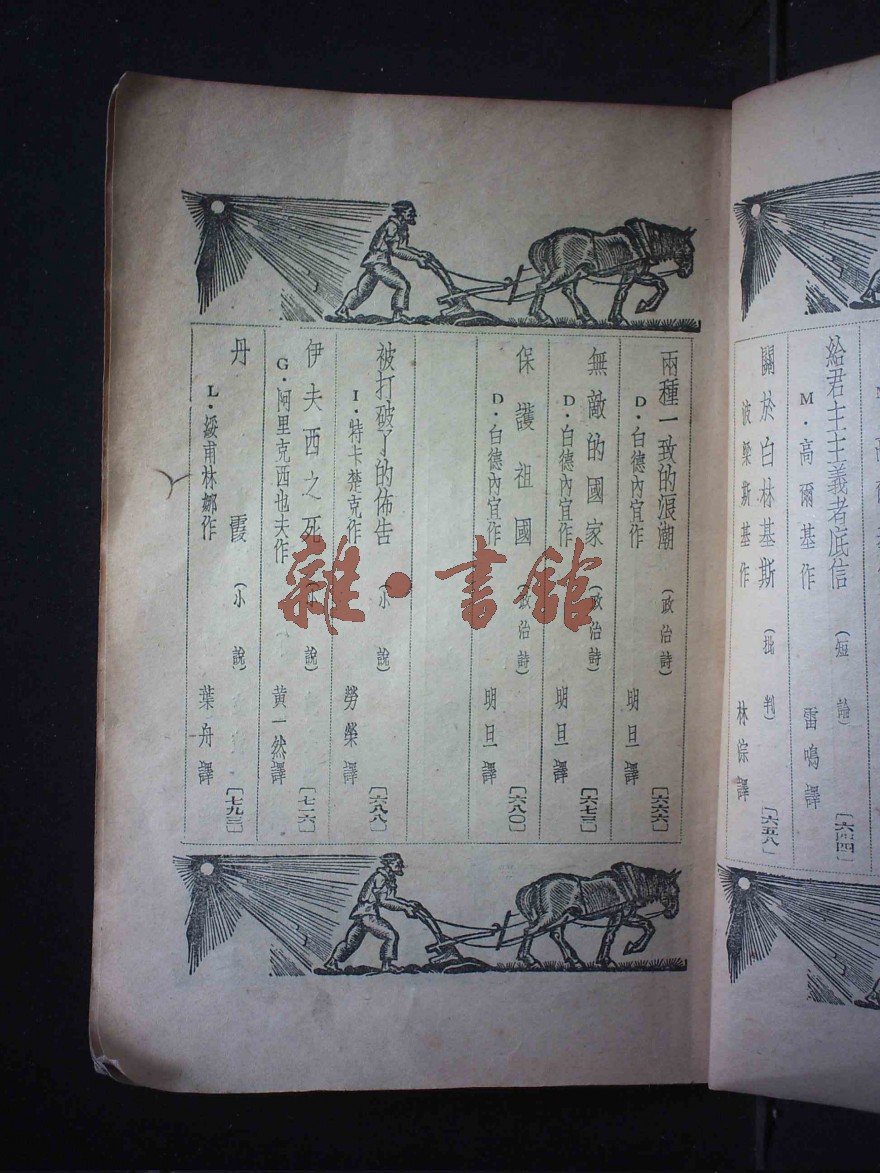 給君主主義者底信（短論）
M·高爾基作 雷鳴譯 [六四四]
關於白林基斯（批判）
波槼斯基作 林淙譯 [六五八]
兩種一致的浪潮（政治詩）
D·白德內宜作 明旦譯 [六六六]
無敵的國家（政治詩）
D·白德內宜作 明旦譯 [六七三]
保護祖國（政治詩）
D·白德內宜作 明旦譯 [六八〇]
被打破了的佈告（小說）
I·特卡楚克作 勞榮譯 [六八八]
伊夫西之死（小說）
G·阿里克西也夫作 黃一然譯 [七一六]
丹霞（小說）
L·綏甫林娜作 葉舟譯 [七九三]
雜·書館